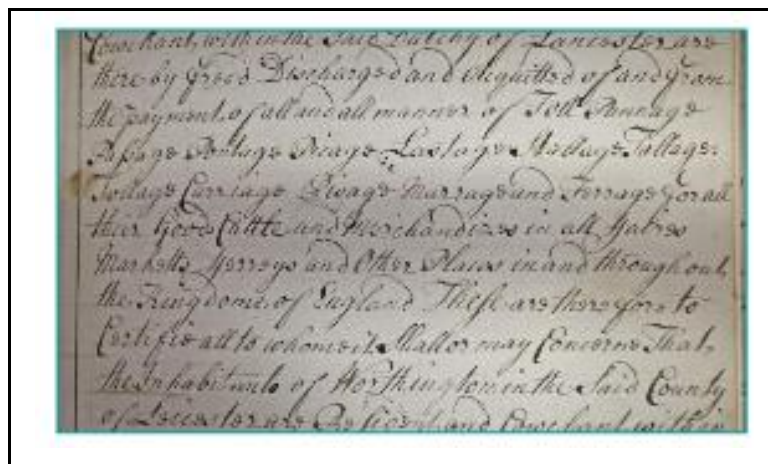 Cowchant, within the Said Dutchy of Lancester are
thereby freed Discharged and Acquitted of and from
the payment of all and all manner of Toll Pannage
Passage Pontage Picage Lastage Stallage Tallage
Tollage Carriage and Ferrage for all
their Good Cattle and Merchandizes in all ffaires
Marketts fferreys and Other Places in and throughout
the Kingdome of England These are therefore to
Certifie all to whome it Shall or may Concerne That
the Inhabitants of Worthington in the Said County
of Leicester are Resiant and Cowchant within